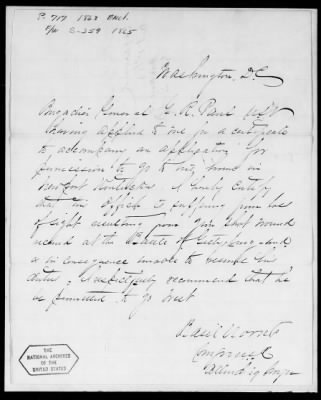 P. 717 1863 Encl.
F/W S-259 1865
Washington, D.C.
Brigadier General G. R. Paul U.S.V
having applied to me for a certificate
to accompany an application for
permission to go to his home in
Newport Kentucky. I hereby certify
that this officer is suffering from loss
of sight resulting from gun shot wound
received at the Battle of Gettysburg and
is in consequence unable to resume his
duties. I respectfully recommend that he
be permitted to go West
Basil Norris
THE
NATIONAL ARCHIVES
OF THE
UNITED STATES